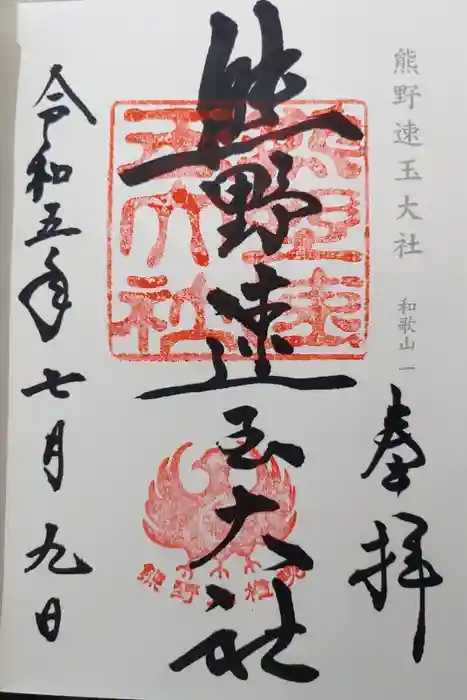 熊野速玉大社 和歌山一
奉拝
熊野速玉大社
令和五年七月九日
熊野速玉大社
熊野大権現